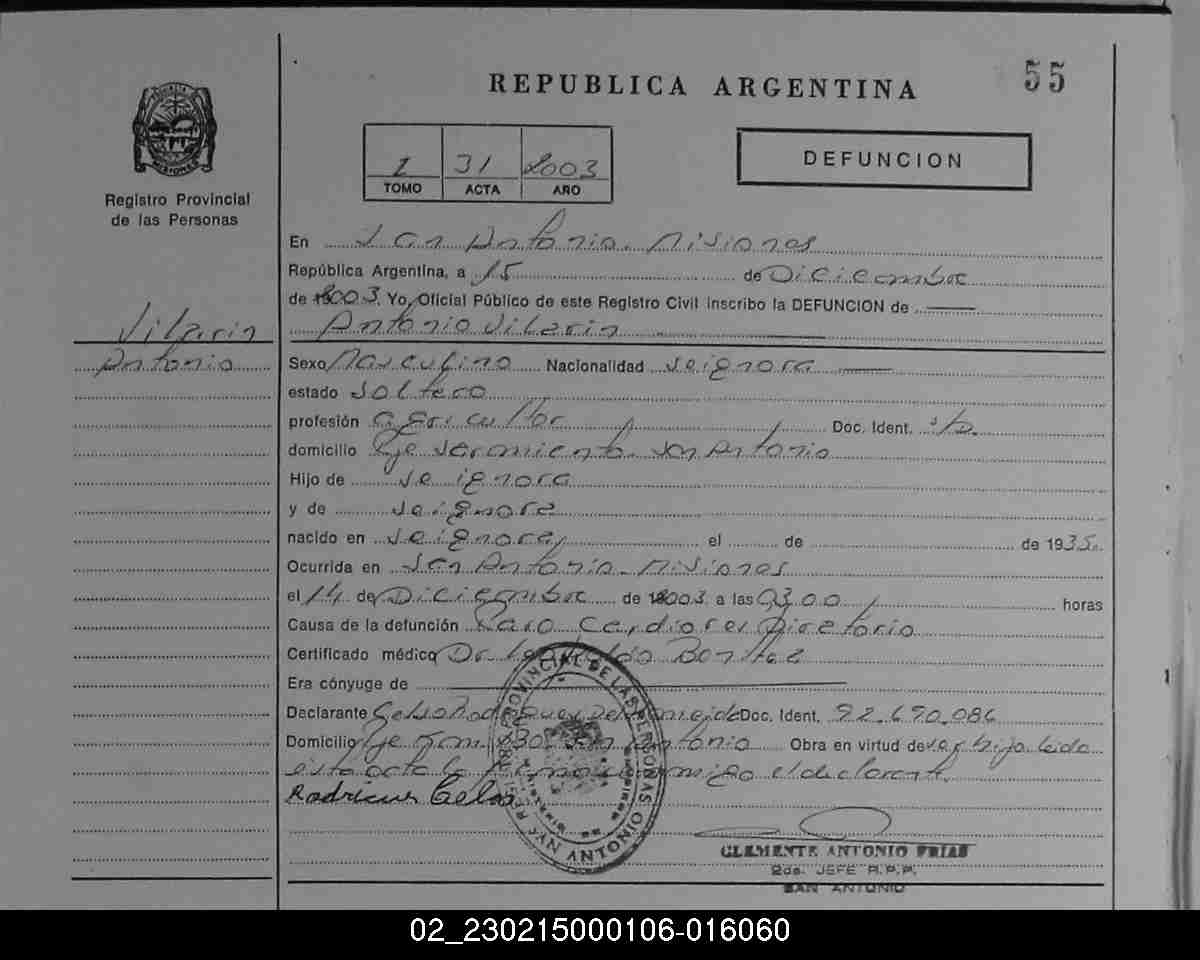 55
REPUBLICA ARGENTINA
1 31 2003
TOMO ACTA AÑO
DEFUNCION
Registro Provincial
de las Personas
En San Antonio. Misiones
República Argentina, a 15 de Diciembre
de 2003. Yo, Oficial Público de este Registro Civil inscribo la DEFUNCION de
Antonio Vilarin
Vilarin
Antonio
Sexo Masculino Nacionalidad se ignora
estado Soltero
profesión agricultor Doc. Ident. s/D.
domicilio Pje Sarmiento. San Antonio
Hijo de se ignora
y de se ignora
nacido en se ignora, el de de 1935.
Ocurrida en San Antonio. Misiones
el 14 de Diciembre de 2003 a las 03,00 horas
Causa de la defunción Paro Cardiorespiretorio
Certificado médico Dr. Benitez
Era cónyuge de
Declarante Celso Rodriguez Doc. Ident. 92.690.086
Domicilio Pje San Antonio Obra en virtud de ser hijo Leida
esta acta la conmigo el declarante.
Rodriguez Celso
REGISTRO PROVINCIAL DE LAS PERSONAS
SAN ANTONIO
CLEMENTE ANTONIO FRIAS
2do. JEFE R.P.P.
SAN ANTONIO
02_230215000106-016060